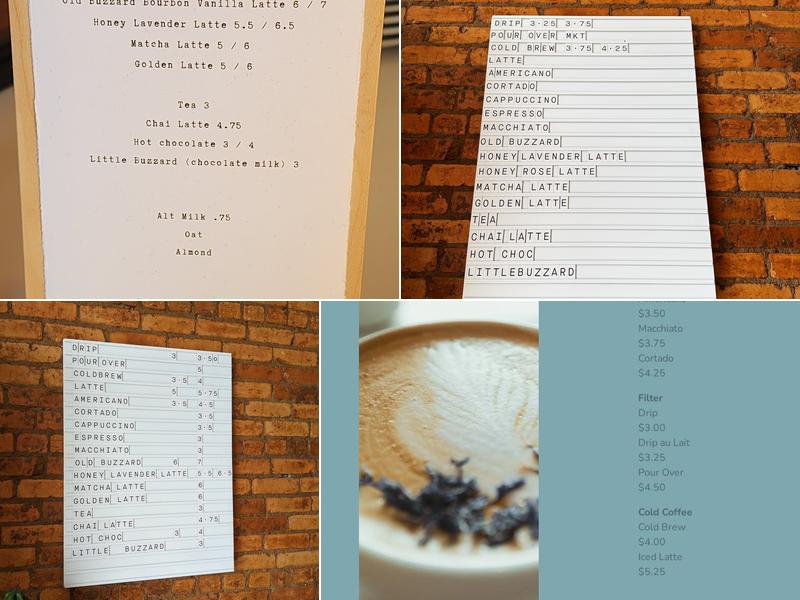 Old Buzzard Bourbon Vanilla Latte 6 / 7
Honey Lavender Latte 5.5 / 6.5
Matcha Latte 5 / 6
Golden Latte 5 / 6
Tea 3
Chai Latte 4.75
Hot chocolate 3 / 4
Little Buzzard (chocolate milk) 3
Alt Milk .75
Oat
Almond
DRIP 3·25 3·75
POUR OVER MKT
COLD BREW 3·75 4·25
LATTE
AMERICANO
CORTADO
CAPPUCCINO
ESPRESSO
MACCHIATO
OLD BUZZARD
HONEY LAVENDER LATTE
HONEY ROSE LATTE
MATCHA LATTE
GOLDEN LATTE
TEA
CHAI LATTE
HOT CHOC
LITTLEBUZZARD
DRIP 3 3·50
POUR OVER 5
COLDBREW 3·5 4
LATTE 5 5·75
AMERICANO 3·5 4·5
CORTADO 3·5
CAPPUCCINO 3·5
ESPRESSO 3
MACCHIATO 3
OLD BUZZARD 6 7
HONEY LAVENDER LATTE 5·5 6·5
MATCHA LATTE 6
GOLDEN LATTE 6
TEA 3
CHAI LATTE 4·75
HOT CHOC 3 4
LITTLE BUZZARD 3
$3.50
Macchiato
$3.75
Cortado
$4.25
Filter
Drip
$3.00
Drip au Lait
$3.25
Pour Over
$4.50
Cold Coffee
Cold Brew
$4.00
Iced Latte
$5.25